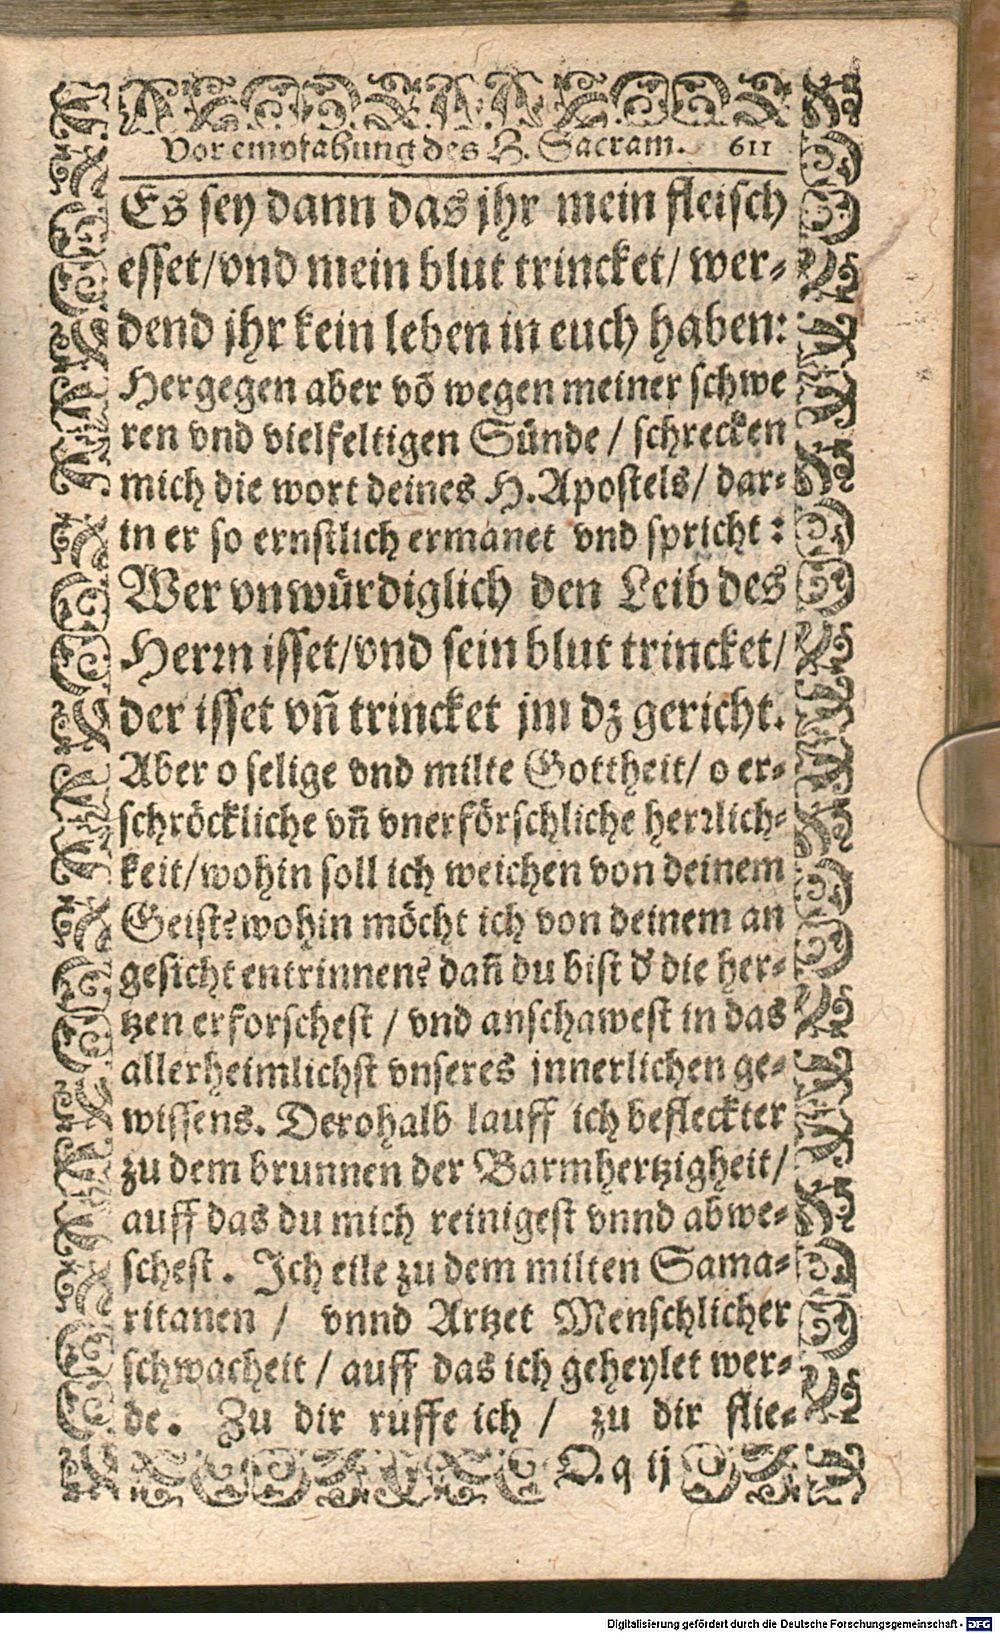 Vor empfahung des H. Sacram. 611
Es sey dann das jhr mein fleisch
esset/vnd mein blut trincket/ wer-
dend jhr kein leben in euch haben:
Hergegen aber võ wegen meiner schwe
ren vnd vielfeltigen Sünde / schrecken
mich die wort deines H. Apostels/ dar-
in er so ernstlich ermanet vnd spricht :
Wer vnwürdiglich den Leib des
Herrn isset/vnd sein blut trincket/
der isset vñ trincket jm dz gericht.
Aber o selige vnd milte Gottheit/ o er-
schröckliche vñ vnerförschliche herrlich-
keit/wohin soll ich weichen von deinem
Geist? wohin möcht ich von deinem an
gesicht entrinnen? dañ du bist d' die her-
tzen erforschest / vnd anschawest in das
allerheimlichst vnseres innerlichen ge-
wissens. Derohalb lauff ich befleckter
zu dem brunnen der Barmhertzigheit/
auff das du mich reinigest vnnd abwe-
schest. Ich eile zu dem milten Sama-
ritanen / vnnd Artzet Menschlicher
schwacheit / auff das ich geheylet wer-
de. Zu dir ruffe ich / zu dir flie-
Q.q ij
Digitalisierung gefördert durch die Deutsche Forschungsgemeinschaft - DFG